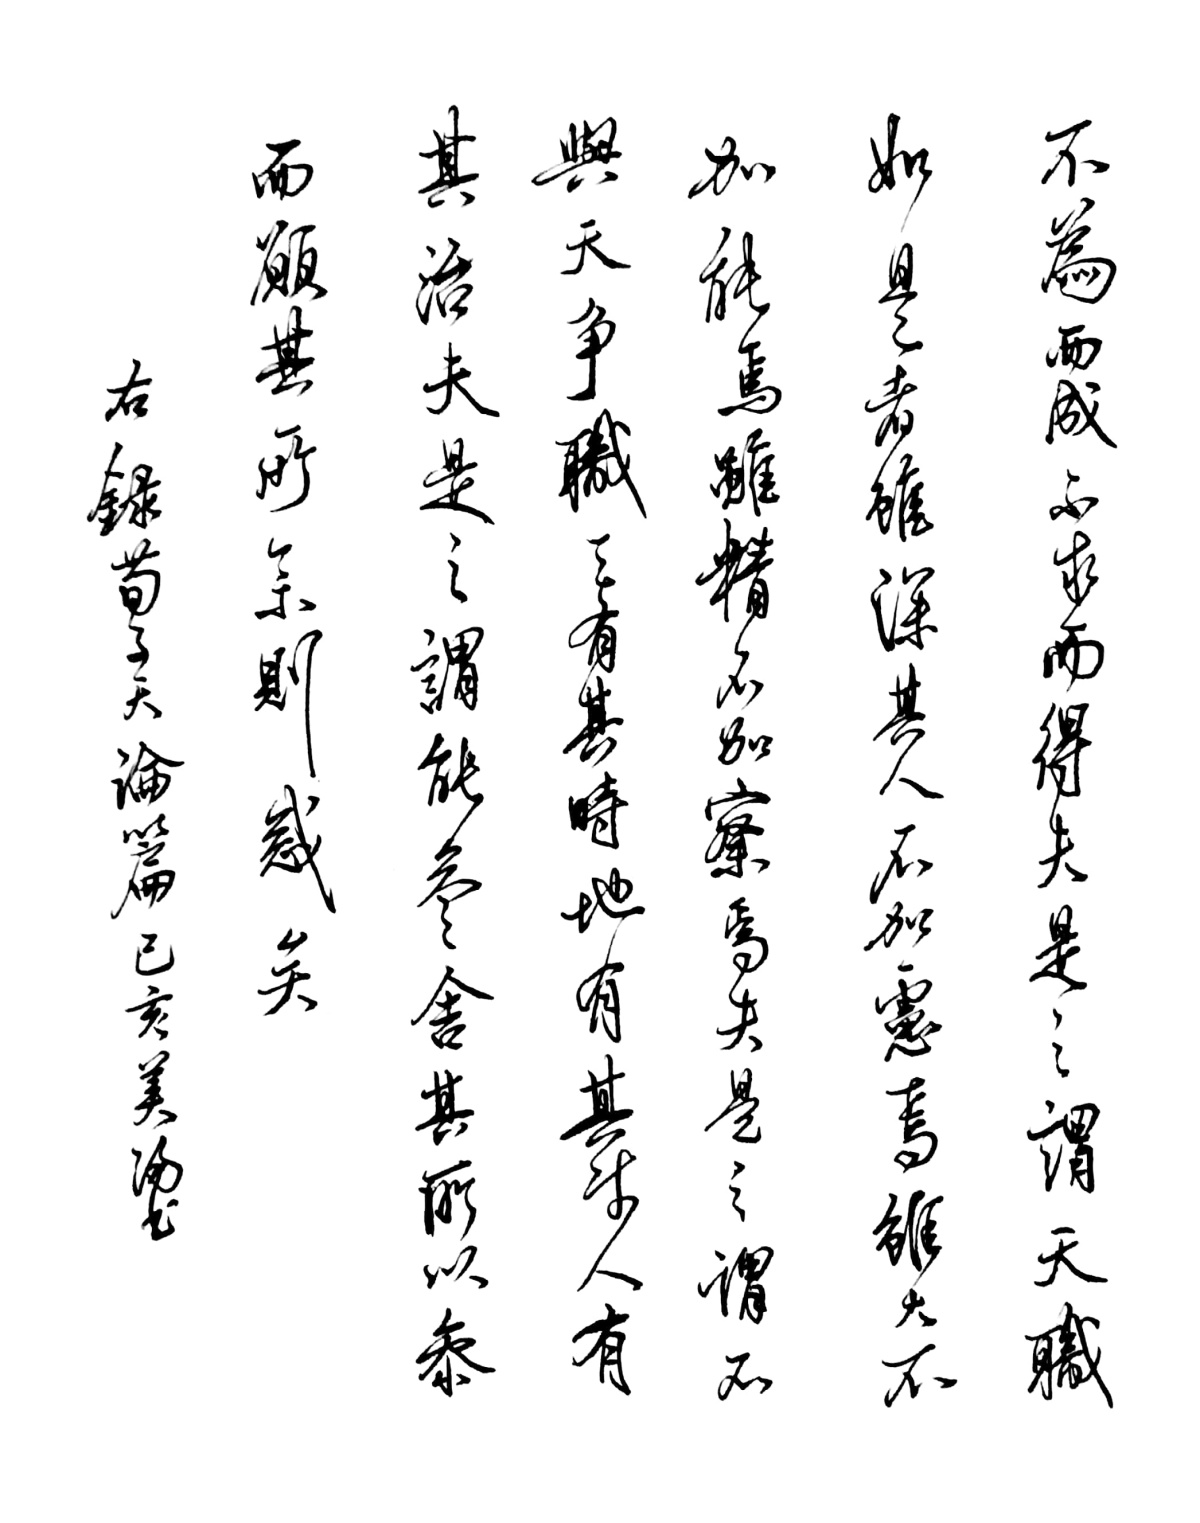 不爲而成不求而得夫是之謂天職
如是者雖深其人不加慮焉雖大不
加能焉雖精不加察焉夫是之謂不
與天争職天有其時地有其財人有
其治夫是之謂能參舍其所以參
而願其所參則惑矣
右録荀子天論篇己亥美陽书